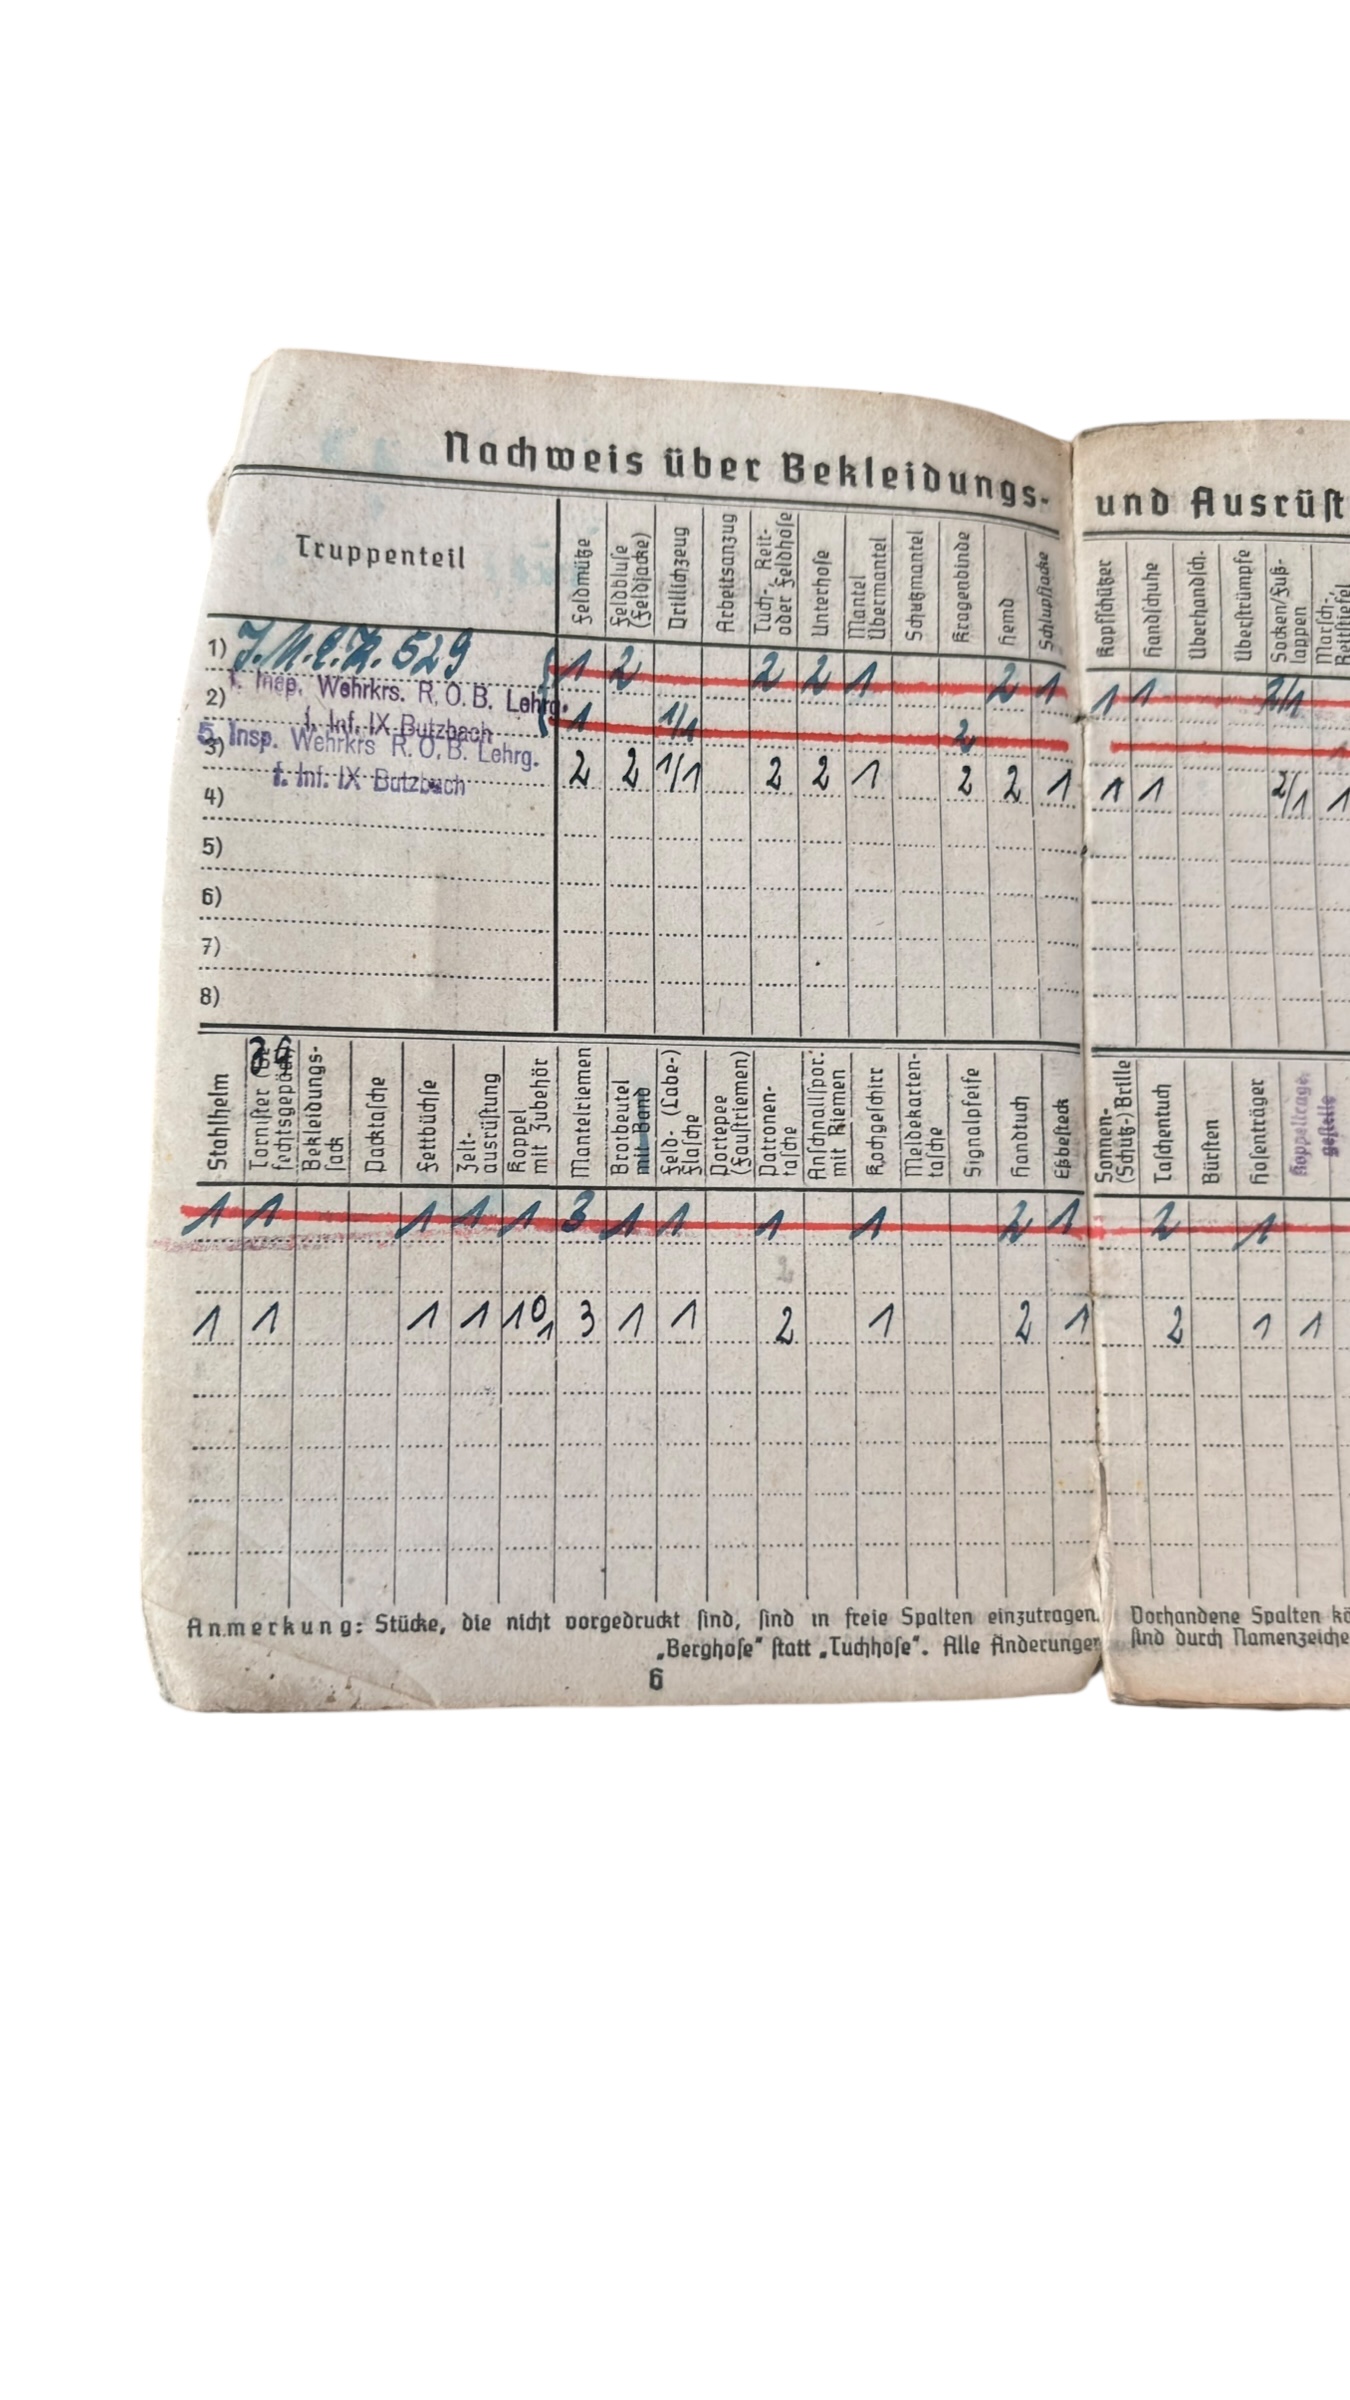 Nachweis über Bekleidungs- und Ausrüst
Truppenteil
Feldmütze
Feldbluse (Feldjacke)
Drillichzeug
Arbeitsanzug
Tuch-, Reit- oder Feldhose
Unterhose
Mantel Übermantel
Schutzmantel
Kragenbinde
Hemd
Schlupfjacke
Kopfschützer
Handschuhe
Überhandsch.
Überstrümpfe
Socken/Fuß-lappen
Marsch-, Reitstiefel
1) 529 1 2 2 2 1 2 1 1 1 2/1
2) 1. Insp. Wehrkrs. R.O.B. Lehrg.
f. Inf. IX Butzbach 1 1/1 2 1
3) 5. Insp. Wehrkrs R.O.B. Lehrg.
f. Inf. IX Butzbach 2 2 1/1 2 2 1 2 2 1 1 1 2/1 1
4)
5)
6)
7)
8)
Stahlhelm
Tornister
fechtsgepäck)
Bekleidungs-sack
Packtasche
Fettbüchse
Zelt-ausrüstung
Koppel mit Zubehör
Mantelriemen
Brotbeutel mit Band
Feld- (Labe-) flasche
Portepee (Faustriemen)
Patronen-tasche
Anschnallspor. mit Riemen
Kochgeschirr
Meldekarten-tasche
Signalpfeife
Handtuch
Eßbesteck
Sonnen- (Schutz-) Brille
Taschentuch
Bürsten
Hosenträger
Koppeltrage-gestelle
1 1 1 1 1 3 1 1 1 1 2 1 2 1
2
1 1 1 1 10 1 3 1 1 2 1 2 1 2 1 1
Anmerkung: Stücke, die nicht vorgedruckt sind, sind in freie Spalten einzutragen. Vorhandene Spalten kö
„Berghose" statt „Tuchhose". Alle Änderungen sind durch Namenzeiche
6